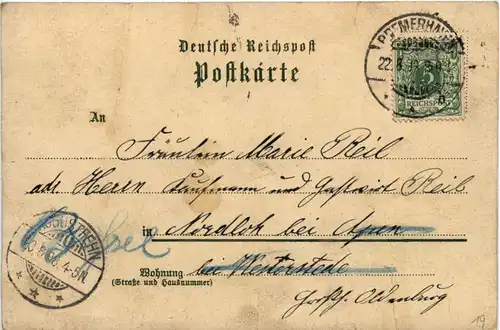 Deutsche Reichspost
Postkarte
BREMERHAVEN
22.8
5
REICHSPOST
An
Fräulein Marie Reil
adr. Herrn Kaufmann und Gastwirt Reil
in Nordloh bei Apen
Wohnung bei Westerstede
(Straße und Hausnummer)
Großh. Oldenburg
19